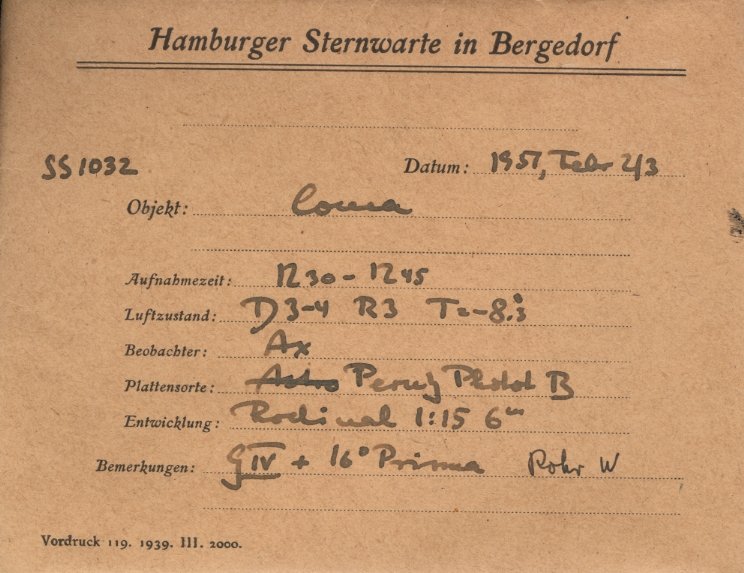 Hamburger Sternwarte in Bergedorf
SS1032 Datum: 1951, Febr 2/3
Objekt: Coma
Aufnahmezeit: 12 30 – 12 45
Luftzustand: D 3-4 R3 T=-8.3
Beobachter: Ax
Plattensorte: Astro Perutz Photot B
Entwicklung: Rodinal 1:15 6m
Bemerkungen: G IV + 16° Prisma Rohr W
Vordruck 119. 1939. III. 2000.